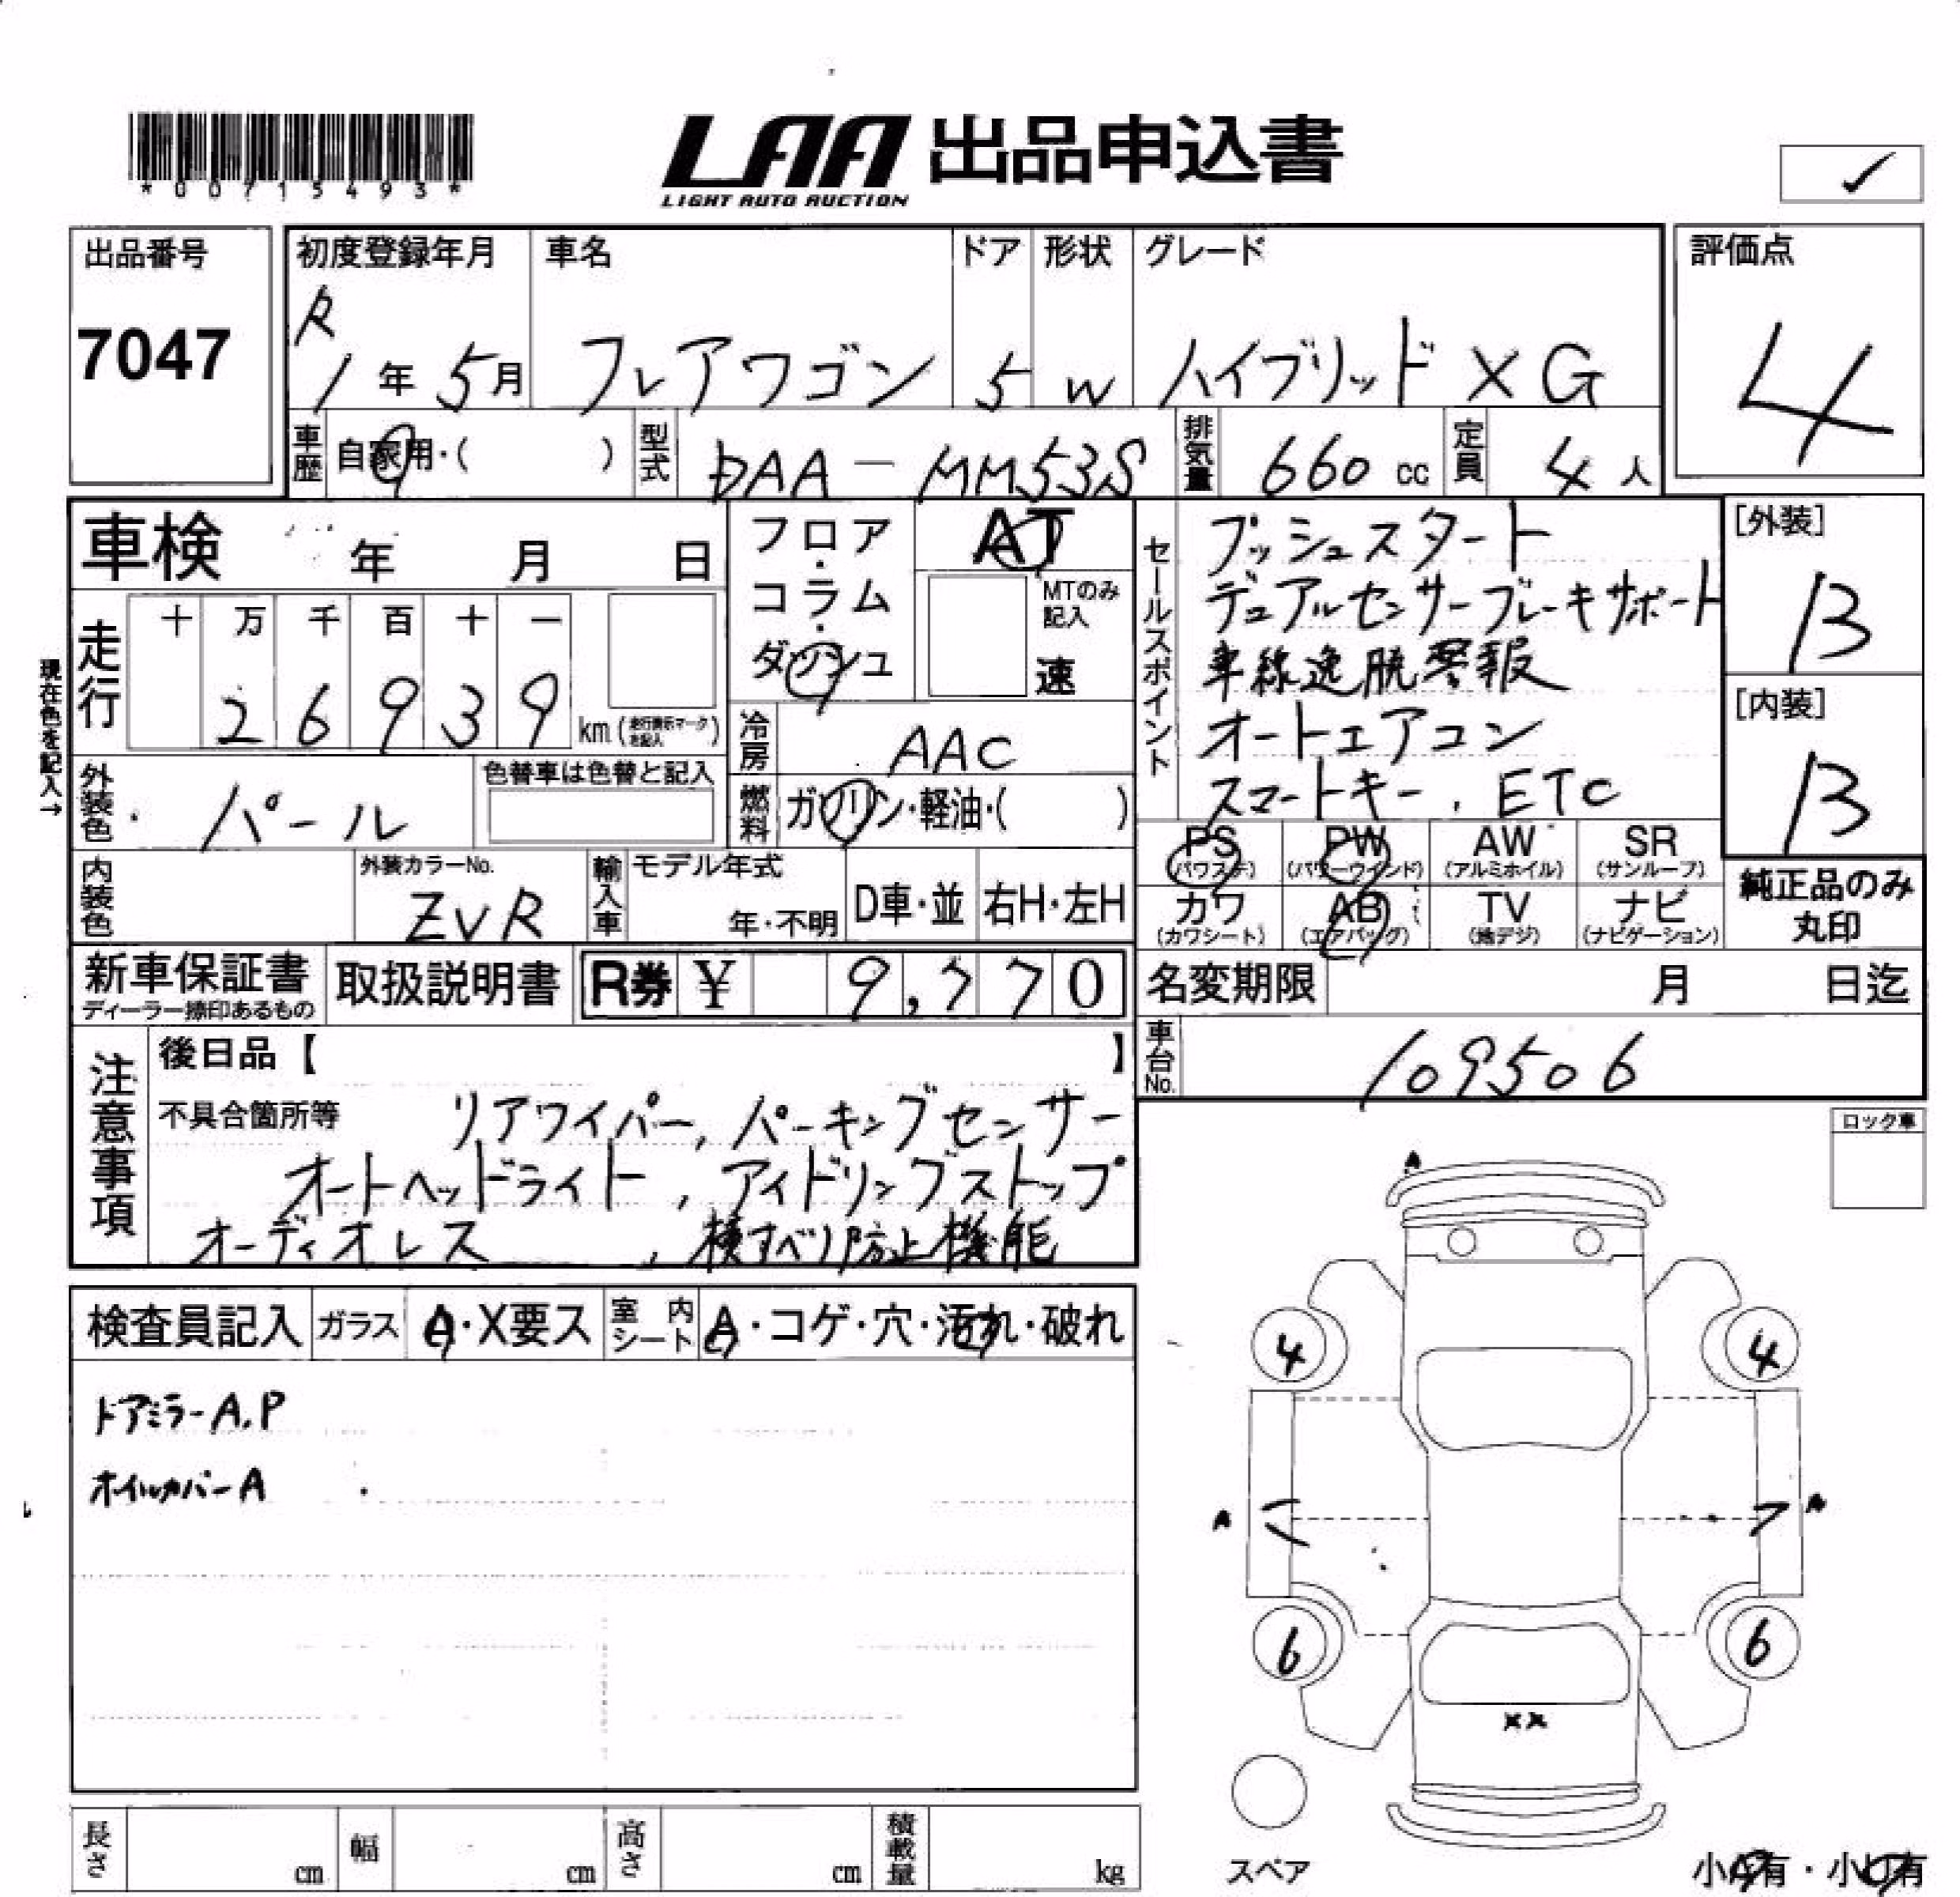 *00715493*
LAA 出品申込書
LIGHT AUTO AUCTION
✓
出品番号
7047
初度登録年月
R
1年5月
車名
フレアワゴン
ドア
5
形状
W
グレード
ハイブリッド XG
評価点
4
車歴
自家用・( )
型式
DAA-MM53S
排気量
660 cc
定員
4人
車検 年 月 日
フロア・コラム・ダッシュ
AT
MTのみ記入
速
セールスポイント
プッシュスタート
デュアルセンサーブレーキサポート
車線逸脱警報
オートエアコン
スマートキー, ETC
[外装]
B
[内装]
B
現在色を記入→
走行
十 万 千 百 十 一
2 6 9 3 9
km(走行表示マークを記入)
冷房
AAC
外装色
パール
色替車は色替と記入
燃料
ガソリン・軽油・( )
PS
(パワステ)
PW
(パワーウインド)
AW
(アルミホイル)
SR
(サンルーフ)
カワ
(カワシート)
AB
(エアバッグ)
TV
(地デジ)
ナビ
(ナビゲーション)
純正品のみ
丸印
内装色
外装カラーNo.
ZVR
輸入車
モデル年式
年・不明
D車・並
右H・左H
新車保証書
ディーラー捺印あるもの
取扱説明書
R券 ¥ 9,770
名変期限 月 日迄
車台No.
109506
注意事項
後日品【 】
不具合箇所等
リアワイパー, パーキングセンサー
オートヘッドライト, アイドリングストップ
オーディオレス, 横すべり防止機能
ロック車
検査員記入
ガラス
A・X要ス
室内シート
A・コゲ・穴・汚れ・破れ
ドアミラーA,P
ホイルカバーA
A
4
4
A
A
6
6
XX
スペア
小A有・小U有
長さ cm
幅 cm
高さ cm
積載量 kg